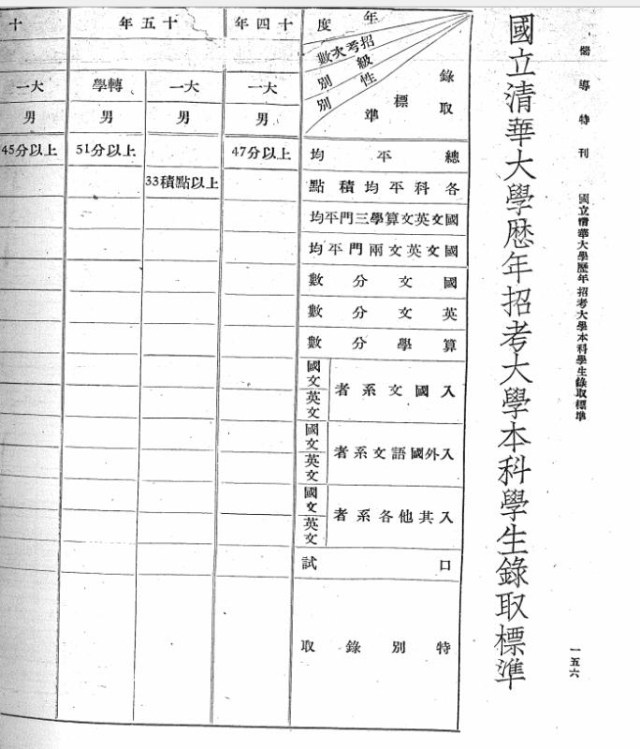 嚮導特刊
國立清華大學歷年招考大學本科學生錄取標準
一五六
國立清華大學歷年招考大學本科學生錄取標準
年度
招考次數
級別
性別
錄取標準
十四年
十五年
十
大一
大一
轉學
大一
男
男
男
男
總平均
47分以上
51分以上
45分以上
各科平均積點
33積點以上
國文英文算學三門平均
國文英文兩門平均
國文分數
英文分數
算學分數
入國文系者
國文
英文
入外國語文系者
國文
英文
入其他各系者
國文
英文
口試
特別錄取